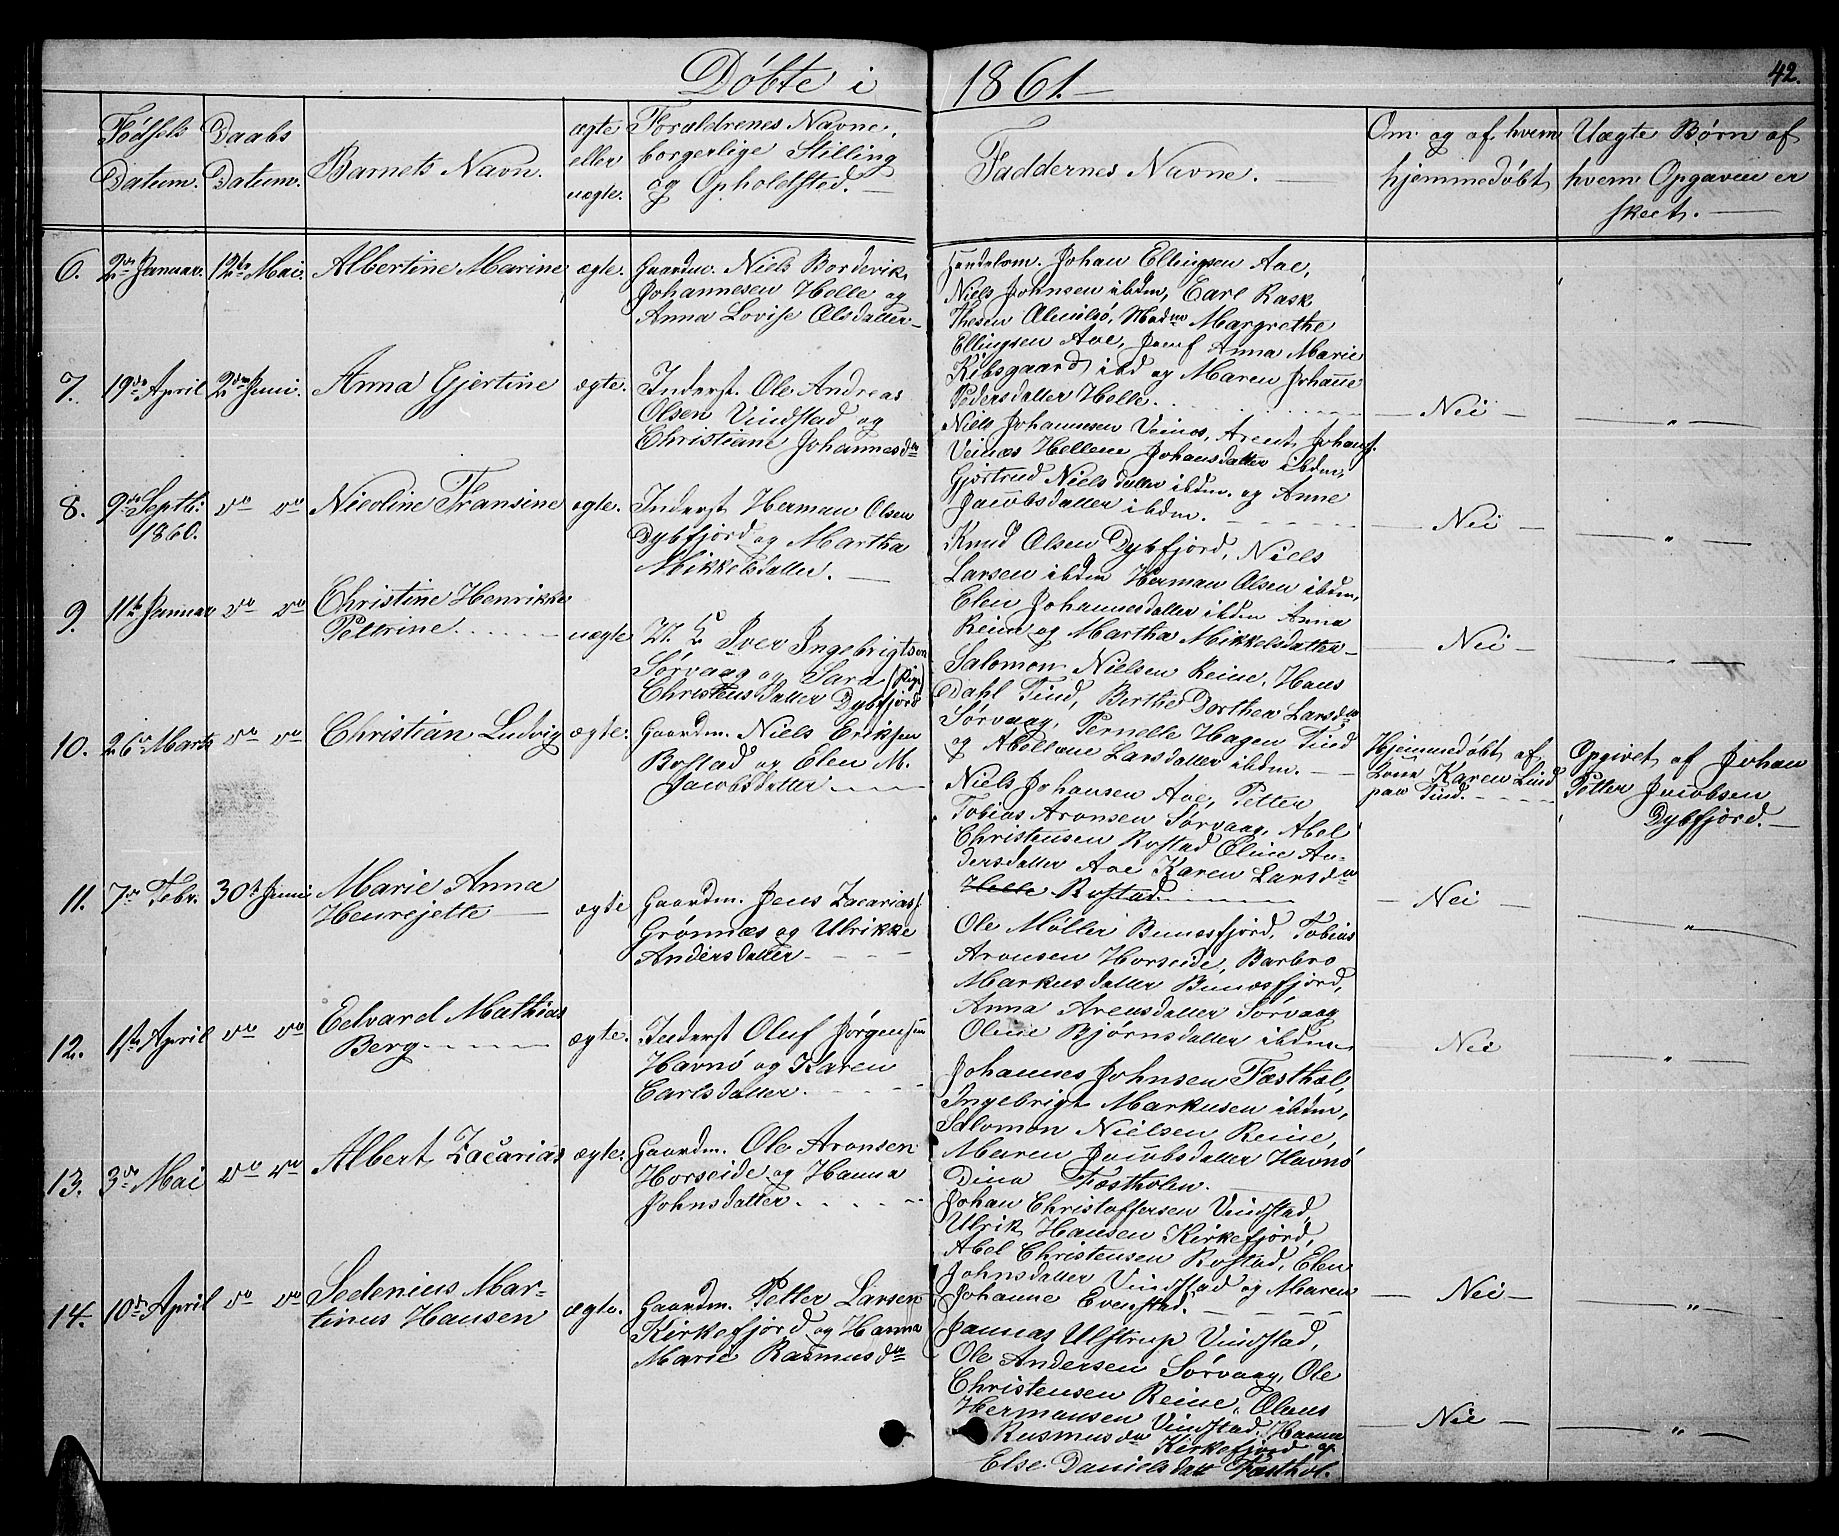 Døbte i 1861.
42.
Fødsels Datum.
Daabs Datum.
Barnets Navn.
ægte eller uægte.
Forældrenes Navne,
borgerlige Stilling
og Opholdssted.
Faddernes Navne.
Om og af hvem
hjemmedøbt
Uægte Børn af
hvem Opgaven er
skeet.
6. 2den Januar. 12te Mai. Albertine Marine ægte. Gaardm. Niels Bordevik
Johannesen Helle og
Anna Lovise Olsdatter
Handelsm. Johan Ellingsen Aae,
Niels Johnsen ibdm, Carl Rask
Thesen Olenilsø, Madme Margrethe
Ellingsen Aae, Jomf Anna Marie
Kibsgaard ibd og Maren Johanne
Pedersdatter Helle.
— Nei — — " —
7. 19de April 2den Juni. Anna Gjertine ægte. Inderst. Ole Andreas
Olsen Vindstad og
Christiane Johannesdr
Niels Johannesen Veines, Arent Johans.
Veinæs Hellene Johansdatter ibdm,
Gjertrud Nielsdatter ibdm. og Anne
Jacobsdatter ibdm.
— Nei — — " —
8. 9de Septb: 1860. do do Nicoline Fransine ægte. Inderst Herman Olsen
Dybfjord og Martha
Mikkelsdatter.
Knud Olsen Dybfjord, Niels
Larsen ibdm Herman Olsen ibdm,
Elen Johannesdatter ibdm Anna
Reine og Martha Mikkelsdatter
— Nei — — " —
9. 11te Januar do do Christine Henrikke
Petrine. uægte U. K. Iver Ingebrigtsen
Sørvaag og Sara (Pige)
Christensdatter Dybfjord
Salomon Nielsen Reine, Hans
Dahl Tind, Berthe Dorthea Larsdr
Sørvaag, Pernelle Hagen Tind
og Abelone Larsdatter ibdm.
Hjemmedøbt af
Kone Karen Lind
paa Tind.
Opgivet af Johan
Petter Jacobsen
Dybfjord.
10. 26de Marts do do Christian Ludvig ægte. Gaardm. Niels Eriksen
Rostad og Elen M.
Jacobsdatter
Niels Johansen Aae, Petter
Tobias Aronsen Sørvaag, Abel
Christensen Rostad Oline An-
dersdatter Aae Karen Larsdr
Helle Rostad
— Nei — — " —
11. 7de Febr. 30te Juni Marie Anna
Henrejette ægte Gaardm. Jens Zacarias.
Grønnæs og Ulrikke
Andersdatter
Ole Møller Bunesfjord, Tobias
Aronsen Horseide, Barbro
Markusdatter Bunesfjord,
Anna Arensdatter Sørvaag
Oline Bjørnsdatter ibdm
Nei — " —
12. 1ste April do do Edvard Mathias
Berg ægte. Inderst Oluf Jørgensen
Havnø og Karen
Carlsdatter.
Johannes Johnsen Fæsthæl,
Ingebrigt Markusen ibdm,
Salomon Nielsen Reine,
Maren Jacobsdatter Havnø
Dina Fæstholen.
13. 3die Mai do do Albert Zacarias ægte. Gaardm. Ole Aronsen
Horseide og Hanna
Johnsdatter.
Johan Christoffersen Vindstad
Ulrik Hansen Kirkefjord,
Abel Christensen Rostad, Elen
Johnsdatter Vindstad og Maren
Johanne Evenstad.
— Nei — — " —
14. 10de April do do Sedenius Mar-
tinus Hansen ægte. Gaardm. Petter Larsen
Kirkefjord og Hanna
Marie Rasmusdr
Janneas Ulstrup Vindstad,
Ole Andersen Sørvaag, Ole
Christensen Reine, Olaus
Hermansen Vindstad, Hanna
Rasmusdr Kirkefjord og
Else Danielsdatt Fæsthol.
— Nei — — " —